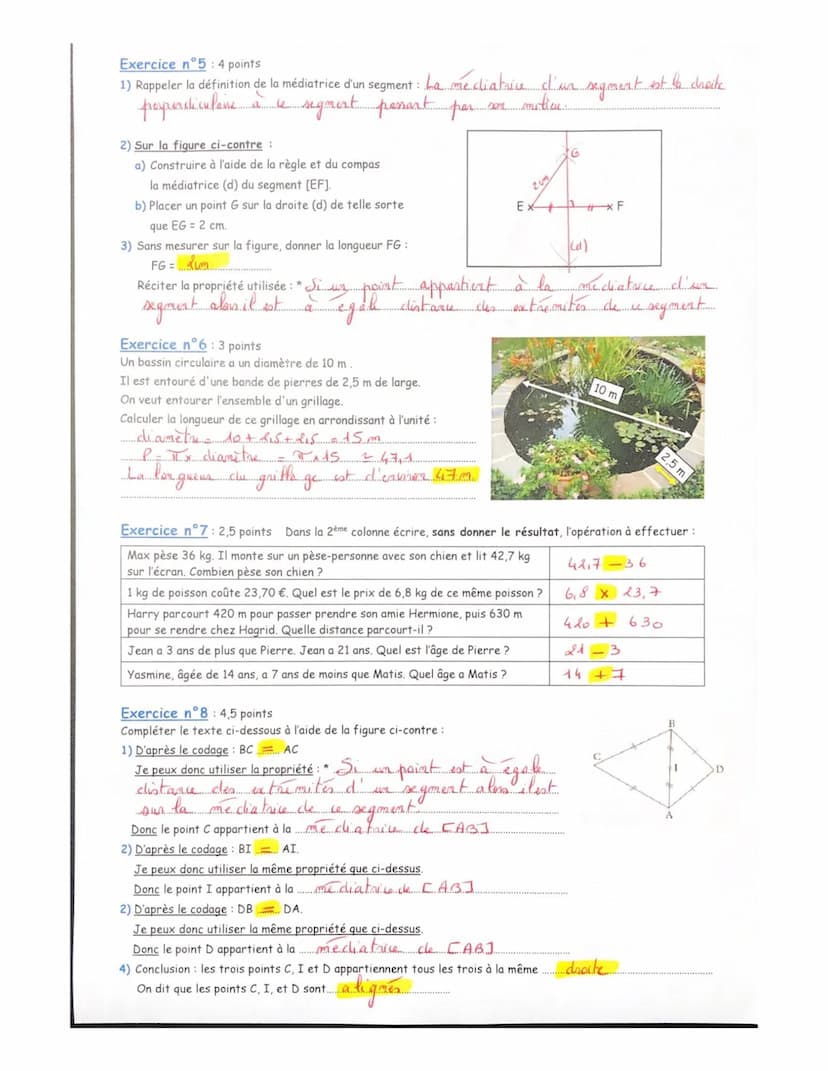 Exercice n°5 : 4 points
1) Rappeler la définition de la médiatrice d'un segment : La médiatrice d'un segment est la droite
perpendiculaire à ce segment passant par son milieu.
2) Sur la figure ci-contre :
a) Construire à l'aide de la règle et du compas
la médiatrice (d) du segment [EF].
b) Placer un point G sur la droite (d) de telle sorte
que EG = 2 cm.
G
2cm
E
F
(d)
3) Sans mesurer sur la figure, donner la longueur FG :
FG = 2cm
Réciter la propriété utilisée : * Si un point appartient à la médiatrice d'un
segment alors il est à égale distance des extrémités de ce segment.
Exercice n°6 : 3 points
Un bassin circulaire a un diamètre de 10 m .
Il est entouré d'une bande de pierres de 2,5 m de large.
On veut entourer l'ensemble d'un grillage.
Calculer la longueur de ce grillage en arrondissant à l'unité :
diamètre = 10 + 2,5 + 2,5 = 15 m
P = π x diamètre = π x 15 ≃ 47,1
La longueur du grillage est d'environ 47 m.
10 m
2,5 m
Exercice n°7 : 2,5 points Dans la 2ème colonne écrire, sans donner le résultat, l'opération à effectuer :
Max pèse 36 kg. Il monte sur un pèse-personne avec son chien et lit 42,7 kg
sur l'écran. Combien pèse son chien ?
42,7 - 36
1 kg de poisson coûte 23,70 €. Quel est le prix de 6,8 kg de ce même poisson ?
6,8 x 23,7
Harry parcourt 420 m pour passer prendre son amie Hermione, puis 630 m
pour se rendre chez Hagrid. Quelle distance parcourt-il ?
420 + 630
Jean a 3 ans de plus que Pierre. Jean a 21 ans. Quel est l'âge de Pierre ?
21 - 3
Yasmine, âgée de 14 ans, a 7 ans de moins que Matis. Quel âge a Matis ?
14 + 7
Exercice n°8 : 4,5 points
Compléter le texte ci-dessous à l'aide de la figure ci-contre :
1) D'après le codage : BC = AC
Je peux donc utiliser la propriété : * Si un point est à égale
distance des extrémités d'un segment alors il est
sur la médiatrice de ce segment.
Donc le point C appartient à la médiatrice de [AB]
B
C
I
D
A
2) D'après le codage : BI = AI.
Je peux donc utiliser la même propriété que ci-dessus.
Donc le point I appartient à la médiatrice de [AB]
2) D'après le codage : DB = DA.
Je peux donc utiliser la même propriété que ci-dessus.
Donc le point D appartient à la médiatrice de [AB]
4) Conclusion : les trois points C, I et D appartiennent tous les trois à la même droite
On dit que les points C, I, et D sont alignés